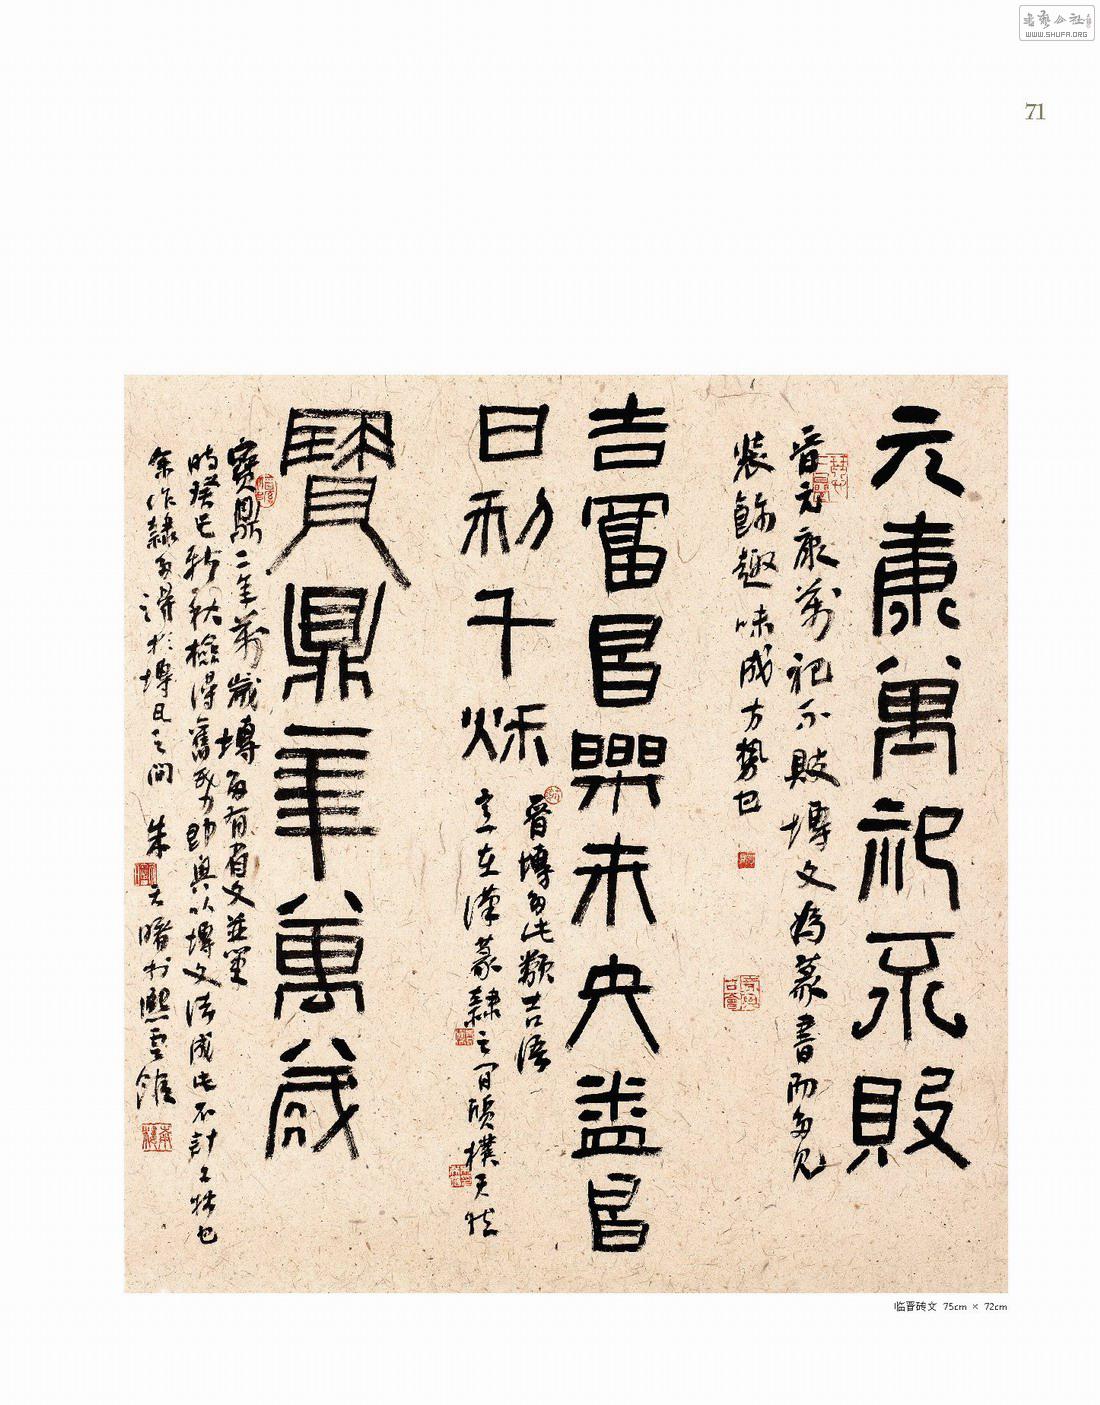 書法公社
WWW.SHUFA.ORG
71
元康萬祀不敗
晉元康萬祀不敗塼文為篆書而多見
裝飾趣味成方勢也
吉富昌樂未央益昌
日利千秋
晉塼多此類吉語
意在漢篆隸之間質樸天然
寶鼎二年萬歲
寶鼎二年萬歲塼多有省文並筆
時癸巳新秋檢得舊紙即興以塼文法成此不計工拙也
余作隸多得於塼瓦之間 朱天曙於熙雲館
临晋砖文 75cm × 72cm